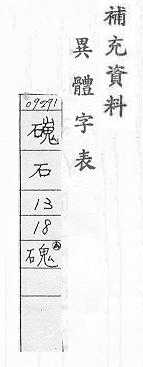 補充資料
異體字表
09271
石
13
18
磈